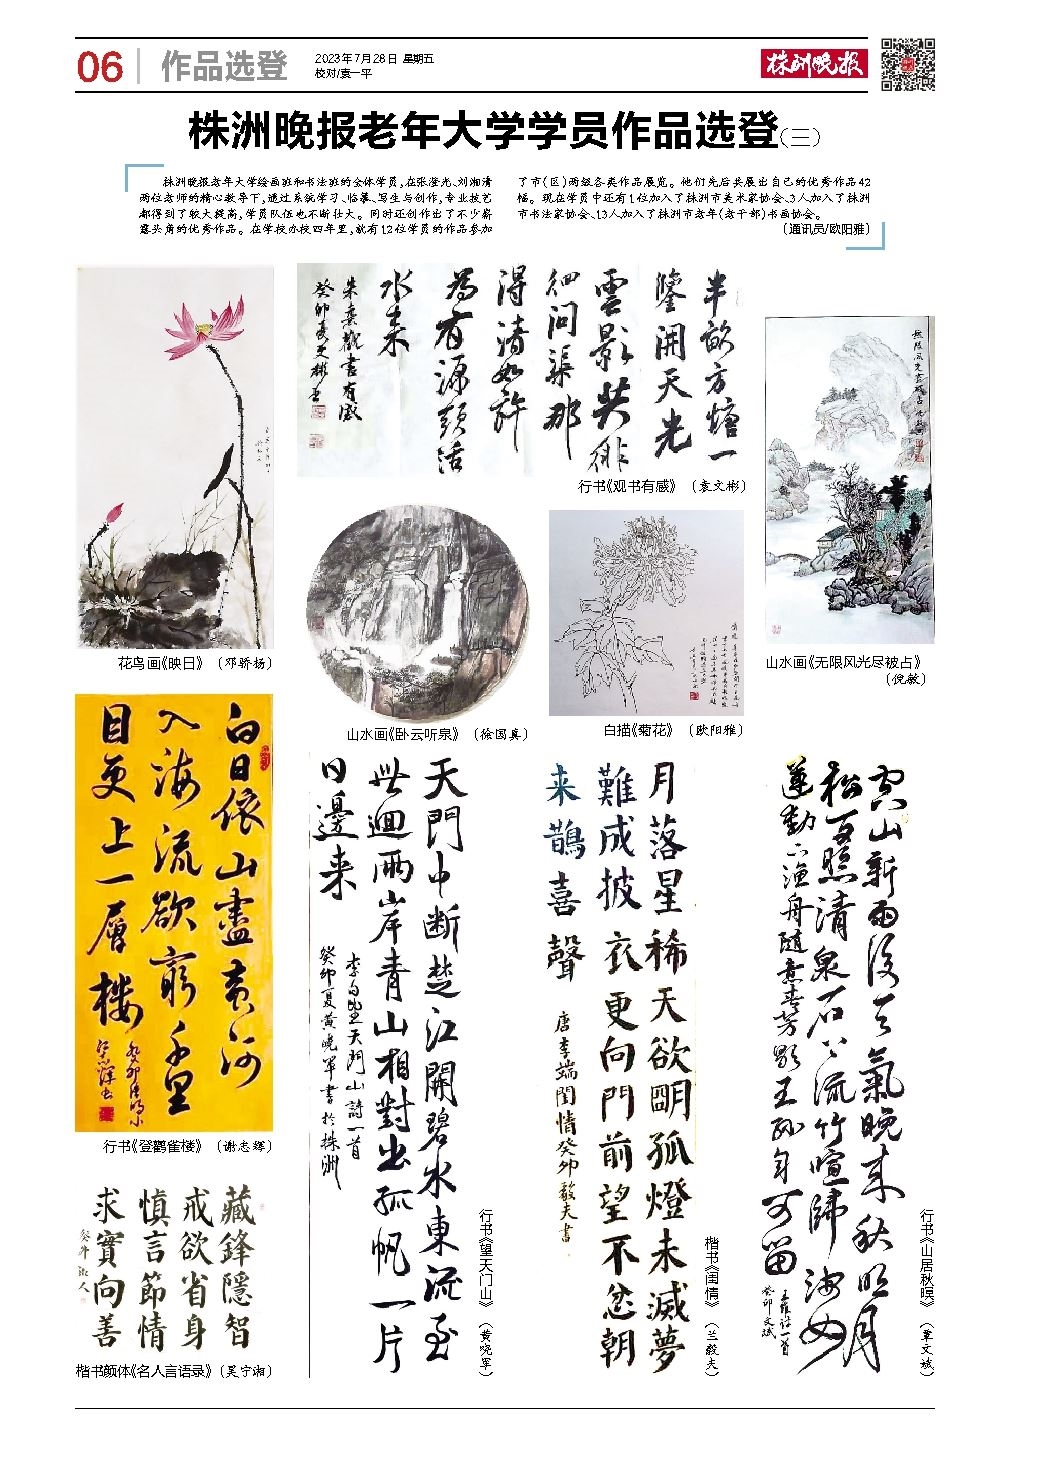 06
作品选登
2023年7月28日 星期五
校对/袁一平
株洲晚报
株洲晚报老年大学学员作品选登(三)
株洲晚报老年大学绘画班和书法班的全体学员,在张澄光、刘湘清
两位老师的精心教导下,通过系统学习、临摹、写生与创作,专业技艺
都得到了较大提高,学员队伍也不断壮大。同时还创作出了不少崭
露头角的优秀作品。在学校办校四年里,就有12位学员的作品参加
了市(区)两级各类作品展览。他们先后共展出自己的优秀作品42
幅。现在学员中还有1位加入了株洲市美术家协会、3人加入了株洲
市书法家协会、13人加入了株洲市老年(老干部)书画协会。
(通讯员/欧阳雅)
花鸟画《映日》(邓骄杨)
半亩方塘一
鉴开天光
雲影共徘
徊问渠那
得清如許
為有源頭活
水来
朱熹觀書有感
癸卯
行书《观书有感》(袁文彬)
無限風光盡被占
山水画《无限风光尽被占》
(倪敏)
山水画《卧云听泉》(徐国真)
白描《菊花》(欧阳雅)
白日依山盡黄河
入海流欲窮千里
目更上一層樓
癸卯
行书《登鹳雀楼》(谢志辉)
藏鋒隱智
戒欲省身
慎言節情
求實向善
癸卯
楷书颜体《名人言语录》(吴宁湘)
天門中断楚江開碧水東流至
此迴兩岸青山相對出孤帆一片
日邊来
李白望天門山詩一首
癸卯夏黄曉軍書於株洲
行书《望天门山》(黄晓军)
月落星稀天欲明孤燈未滅夢
難成披衣更向門前望不忿朝
来鵲喜聲
唐李端閨情癸卯毅夫書
楷书《闺情》(兰毅夫)
空山新雨後天氣晚来秋明月
松间照清泉石上流竹喧歸浣女
蓮動下漁舟随意春芳歇王孫自可留
王維詩一首
癸卯文斌
行书《山居秋暝》(覃文斌)